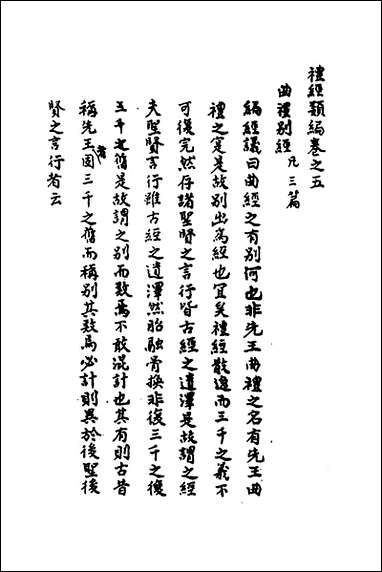 禮經類編卷之五
曲禮別經凡三篇
編經議曰曲經之有別何也非先王曲禮之名有先王曲
禮之寔是故別出為經也宜矣禮經散逸而三千之義不
可復完然存諸聖賢之言行皆古經之遺澤是故謂之經
夫聖賢言行雖古經之遺澤然胎融骨換非復三千之復
三千之舊是故謂之別而數焉不敢混計也其有則古昔
稱先王者固三千之舊而稱別其數焉必計則異於後聖後
賢之言行者云